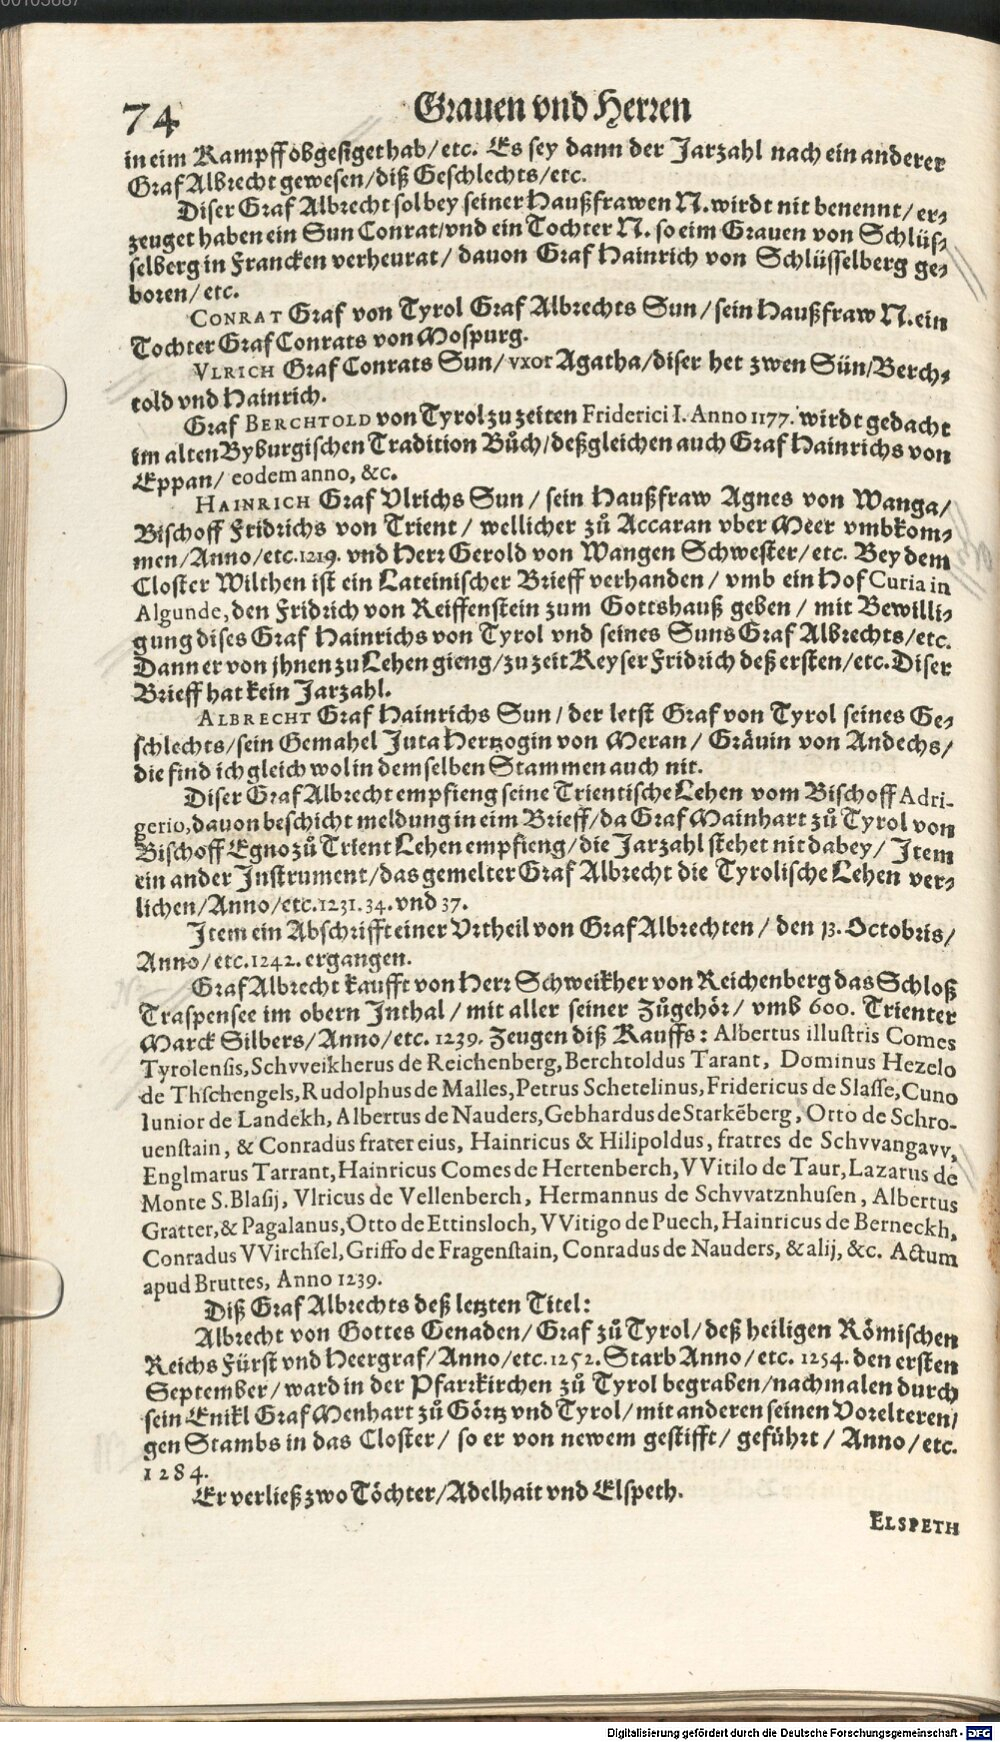 74 Grauen vnd Herren
in eim Kampff obgesiget hab/ etc. Es sey dann der Jarzahl nach ein anderer
Graf Albrecht gewesen/ diß Geschlechts/ etc.
Diser Graf Albrecht sol bey seiner Haußfrawen N. wirdt nit benennt/ er-
zeuget haben ein Sun Conrat/ vnd ein Tochter N. so eim Grauen von Schlüs-
selberg in Francken verheurat/ dauon Graf Hainrich von Schlüsselberg ge-
boren/ etc.
CONRAT Graf von Tyrol Graf Albrechts Sun/ sein Haußfraw N. ein
Tochter Graf Conrats von Mospurg.
VLRICH Graf Conrats Sun/ vxor Agatha/ diser het zwen Sün/ Berch-
told vnd Hainrich.
Graf BERCHTOLD von Tyrol zu zeiten Friderici I. Anno 1177. wirdt gedacht
im alten Byburgischen Tradition Bůch/ deßgleichen auch Graf Hainrichs von
Eppan/ eodem anno, &c.
HAINRICH Graf Vlrichs Sun/ sein Haußfraw Agnes von Wanga/
Bischoff Fridrichs von Trient/ wellicher zů Accaran vber Meer vmbkom-
men/ Anno/ etc. 1219. vnd Herr Gerold von Wangen Schwester/ etc. Bey dem
Closter Wilthen ist ein Lateinischer Brieff verhanden/ vmb ein Hof Curia in
Algunde, den Fridrich von Reiffenstein zum Gottshauß geben/ mit Bewilli-
gung dises Graf Hainrichs von Tyrol vnd seines Suns Graf Albrechts/ etc.
Dann er von jhnen zu Lehen gieng/ zu zeit Keyser Fridrich deß ersten/ etc. Diser
Brieff hat kein Jarzahl.
ALBRECHT Graf Hainrichs Sun/ der letst Graf von Tyrol seines Ge-
schlechts/ sein Gemahel Juta Hertzogin von Meran/ Gräuin von Andechs/
die find ich gleich wol in demselben Stammen auch nit.
Diser Graf Albrecht empfieng seine Trientische Lehen vom Bischoff Adri-
gerio, dauon beschicht meldung in eim Brieff/ da Graf Mainhart zů Tyrol von
Bischoff Egno zů Trient Lehen empfieng/ die Jarzahl stehet nit dabey/ Item
ein ander Instrument/ das gemelter Graf Albrecht die Tyrolische Lehen ver-
lichen/ Anno/ etc. 1231. 34. vnd 37.
Item ein Abschrifft einer Vrtheil von Graf Albrechten/ den 13. Octobris/
Anno/ etc. 1242. ergangen.
Graf Albrecht kaufft von Herr Schweikher von Reichenberg das Schloß
Traspensee im obern Inthal/ mit aller seiner Zůgehör/ vmb 600. Trienter
Marck Silbers/ Anno/ etc. 1239. Zeugen diß Kauffs: Albertus illustris Comes
Tyrolensis, Schvveikherus de Reichenberg, Berchtoldus Tarant, Dominus Hezelo
de Thschengels, Rudolphus de Malles, Petrus Schetelinus, Fridericus de Slasse, Cuno
Iunior de Landekh, Albertus de Nauders, Gebhardus de Starkēberg, Otto de Schro-
uenstain, & Conradus frater eius, Hainricus & Hilipoldus, fratres de Schvvangavv,
Englmarus Tarrant, Hainricus Comes de Hertenberch, VVitilo de Taur, Lazarus de
Monte S. Blasij, Vlricus de Vellenberch, Hermannus de Schvvatznhusen, Albertus
Gratter, & Pagalanus, Otto de Ettinsloch, VVitigo de Puech, Hainricus de Berneckh,
Conradus VVirchsel, Griffo de Fragenstain, Conradus de Nauders, & alij, &c. Actum
apud Bruttes, Anno 1239.
Diß Graf Albrechts deß letzten Titel:
Albrecht von Gottes Genaden/ Graf zů Tyrol/ deß heiligen Römischen
Reichs Fürst vnd Heergraf/ Anno/ etc. 1252. Starb Anno/ etc. 1254. den ersten
September/ ward in der Pfarrkirchen zů Tyrol begraben/ nachmalen durch
sein Enikl Graf Menhart zů Görtz vnd Tyrol/ mit anderen seinen Vorelteren/
gen Stambs in das Closter/ so er von newem gestifft/ geführt/ Anno/ etc.
1284.
Er verließ zwo Töchter/ Adelhait vnd Elspeth.
ELSPETH
Digitalisierung gefördert durch die Deutsche Forschungsgemeinschaft - DFG